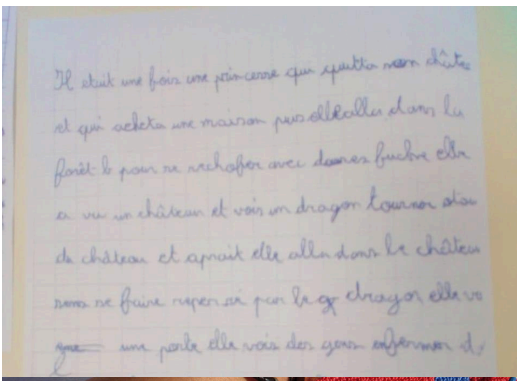 Il était une fois une princesse qui quitta son châte
et qui acheta une maison puis elle alla dans la
forêt pour se rechofer avec buche elle
a vu un château et vois un dragon tourner atou
du château et aprait elle alla dans le château
sans se faire reperer par le dragon elle vo
une porte elle vois des gens enfermer d